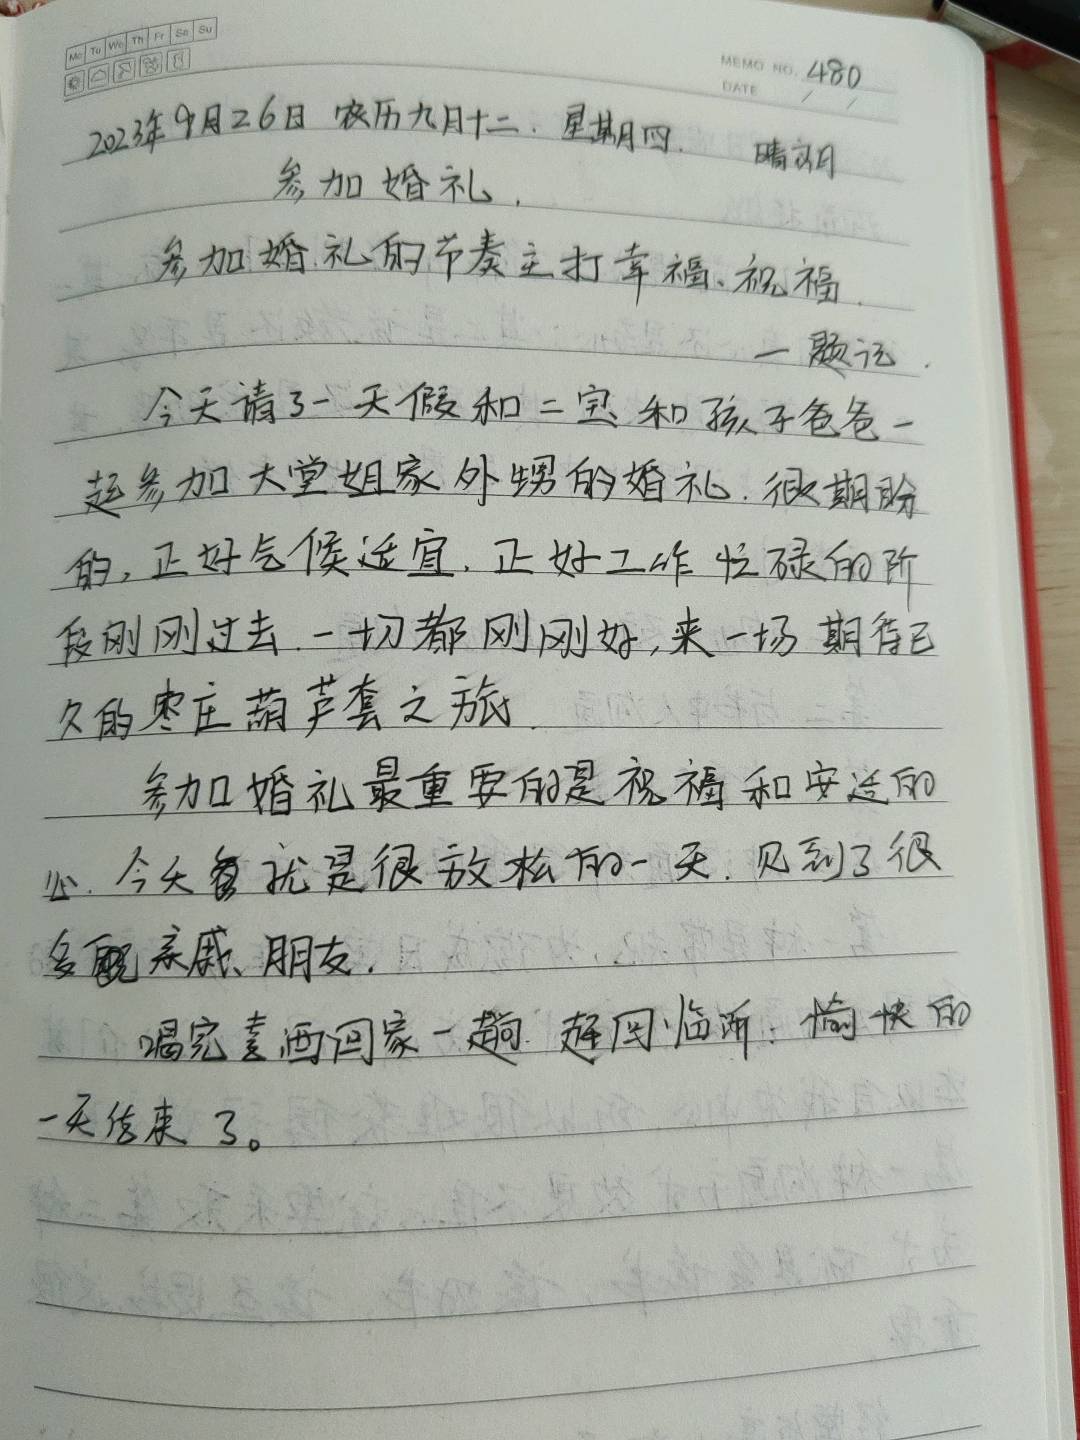 Mo Tu We Th Fr Sa Su
MEMO NO. 480
DATE / /
2023年9月26日 农历九月十二. 星期四. 晴朗
参加婚礼.
参加婚礼的节奏主打幸福、祝福.
一题记.
今天请了一天假和二宝和孩子爸爸一
起参加大堂姐家外甥的婚礼. 很期盼
的, 正好气候适宜. 正好工作忙碌的阶
段刚刚过去. 一切都刚刚好, 来一场期待已
久的枣庄葫芦套之旅.
参加婚礼最重要的是祝福和安适的
心. 今天就是很放松的一天. 见到了很
多亲戚、朋友.
喝完喜酒回家一趟. 赶回临沂. 愉快的
一天结束了。